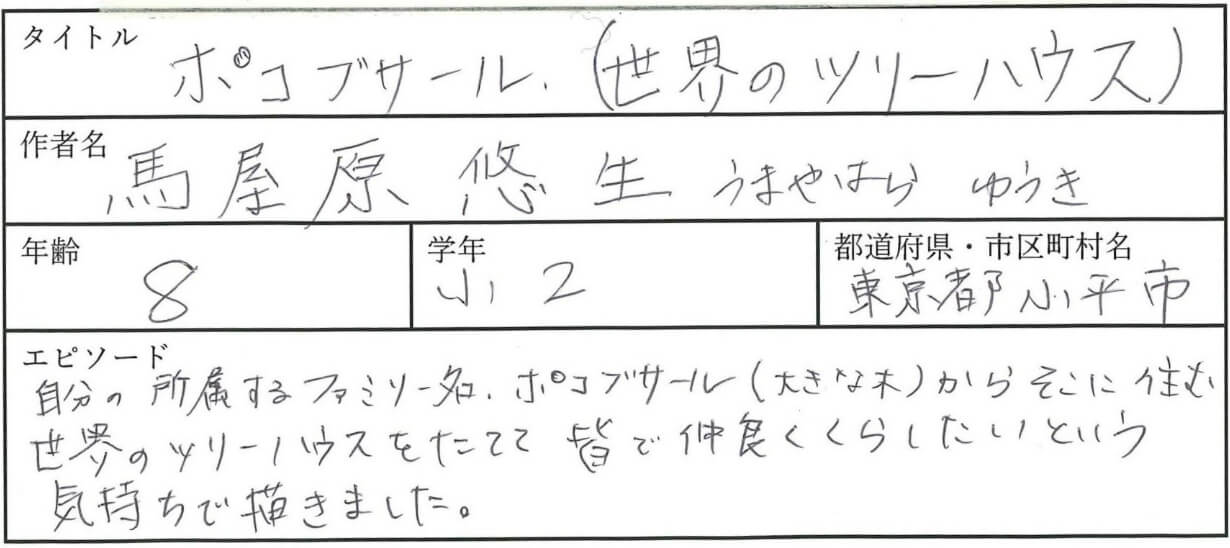 タイトル
ポコブサール.(世界のツリーハウス)
作者名
馬屋原 悠生 うまやはら ゆうき
年齢
8
学年
小2
都道府県・市区町村名
東京都小平市
エピソード
自分の所属するファミリー名、ポコブサール(大きな木)からそこに住む
世界のツリーハウスをたてて皆で仲良くくらしたいという
気持ちで描きました。